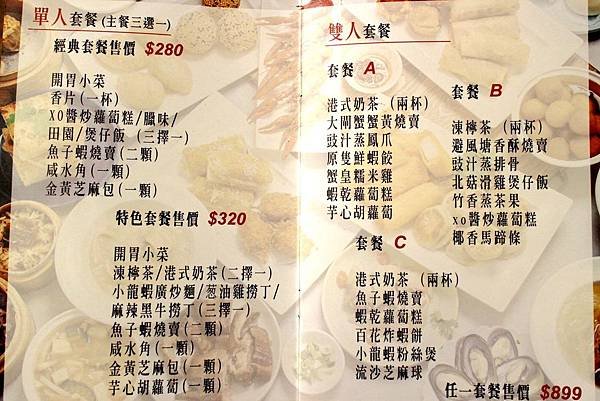 單人套餐(主餐三選一)
經典套餐售價 $280
開胃小菜
香片(一杯)
XO醬炒蘿蔔糕/臘味/
田園/煲仔飯 (三擇一)
魚子蝦燒賣(二顆)
咸水角(一顆)
金黃芝麻包(一顆)
特色套餐售價 $320
開胃小菜
凍檸茶/港式奶茶(二擇一)
小龍蝦廣炒麵/葱油雞撈丁/
麻辣黑牛撈丁(三擇一)
魚子蝦燒賣(二顆)
咸水角(一顆)
金黃芝麻包(一顆)
芋心胡蘿蔔(一顆)
雙人套餐
套餐 A
港式奶茶 (兩杯)
大閘蟹蟹黃燒賣
豉汁蒸鳳爪
原隻鮮蝦餃
蟹皇糯米雞
蝦乾蘿蔔糕
芋心胡蘿蔔
套餐 B
凍檸茶 (兩杯)
避風塘香酥燒賣
豉汁蒸排骨
北菇滑雞煲仔飯
竹香蒸茶果
xo醬炒蘿蔔糕
椰香馬蹄條
套餐 C
港式奶茶 (兩杯)
魚子蝦燒賣
蝦乾蘿蔔糕
百花炸蝦餅
小龍蝦粉絲煲
流沙芝麻球
任一套餐售價 $899